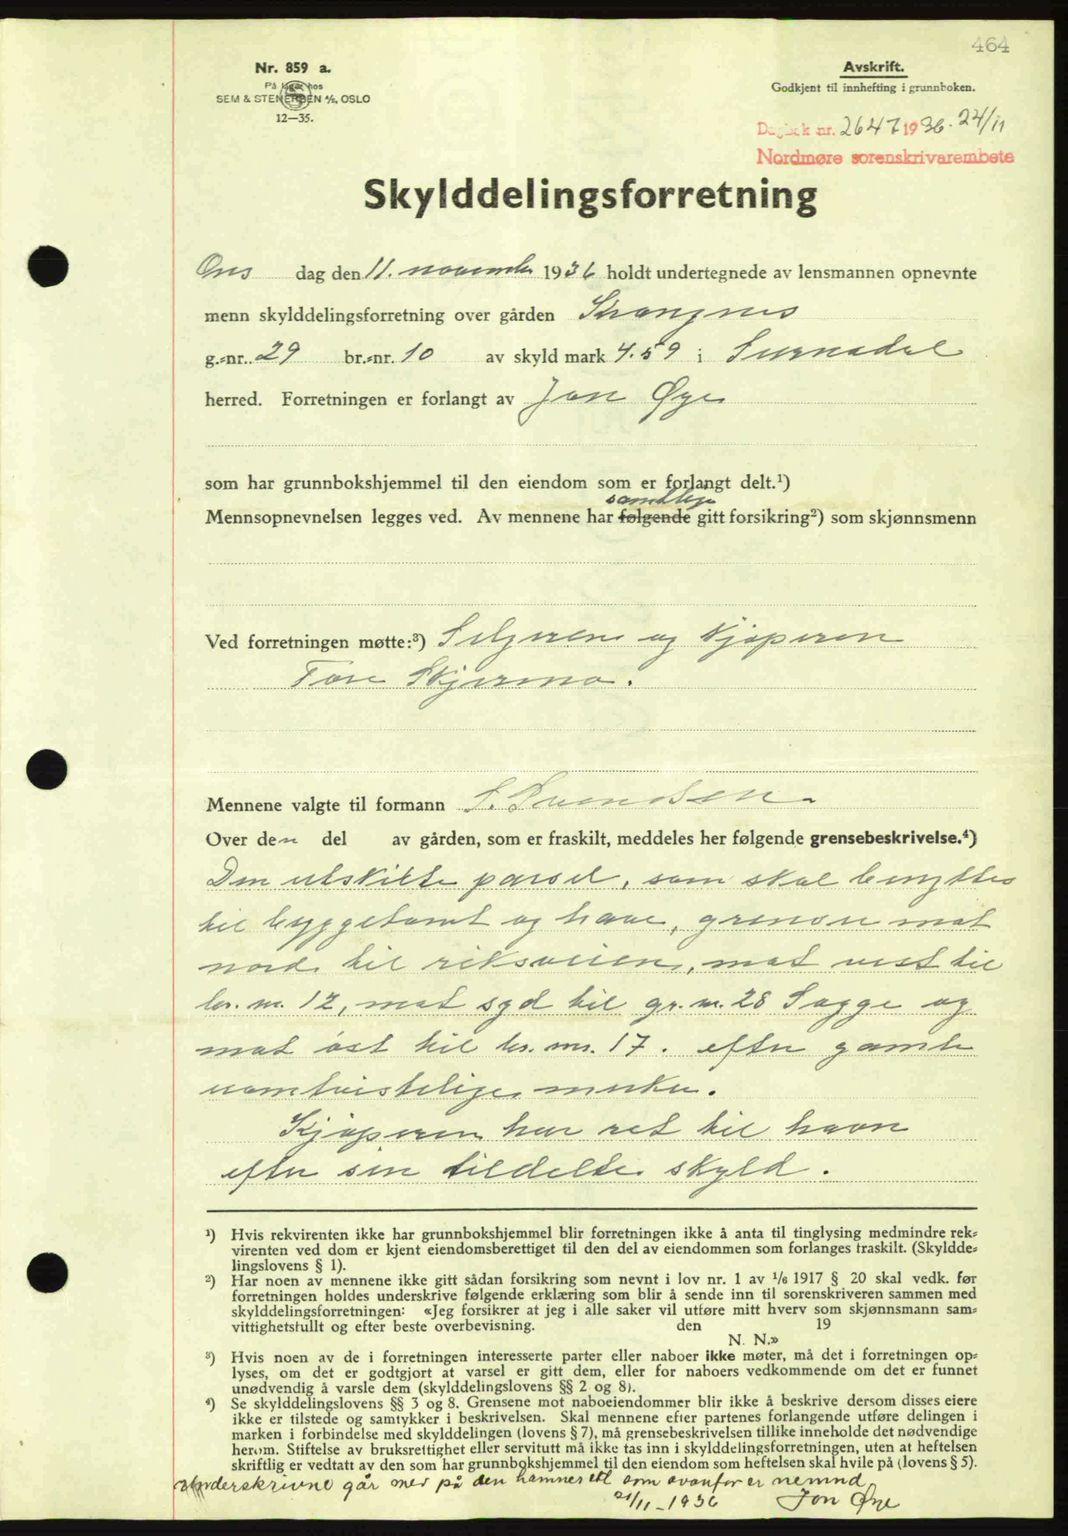 464
Nr. 859 a.
På lager hos
SEM & STENERSEN A/S, OSLO
12—35.
Avskrift.
Godkjent til innhefting i grunnboken.
Dagbok nr. 2647 1936. 24/11
Nordmøre sorenskrivarembete
Skylddelingsforretning
Ons dag den 11. november 1936 holdt undertegnede av lensmannen opnevnte
menn skylddelingsforretning over gården Strangnes
g.=nr. 29 br.=nr. 10 av skyld mark 4.59 i Surnadal
herred. Forretningen er forlangt av Jon Øye
som har grunnbokshjemmel til den eiendom som er forlangt delt.¹)
samtlige
Mennsopnevnelsen legges ved. Av mennene har følgende gitt forsikring²) som skjønnsmenn
Ved forretningen møtte:³) Selgeren og kjøperen
Tore Skjermo.
Mennene valgte til formann S. Svendsen.
Over den del av gården, som er fraskilt, meddeles her følgende grensebeskrivelse.⁴)
Den utskilte parsel, som skal benyttes
til byggetomt og have, grenser mot
nord til riksveien, mot vest til
br. nr. 12, mot syd til gr. nr. 28 Sagge og
mot øst til br. nr. 17. efter gamle
uomtvistelige merker.
Kjøperen har ret til havn
efter sin tildelte skyld.
¹) Hvis rekvirenten ikke har grunnbokshjemmel blir forretningen ikke å anta til tinglysing medmindre rek=
virenten ved dom er kjent eiendomsberettiget til den del av eiendommen som forlanges fraskilt. (Skyldde=
lingslovens § 1).
²) Har noen av mennene ikke gitt sådan forsikring som nevnt i lov nr. 1 av 1/6 1917 § 20 skal vedk. før
forretningen holdes underskrive følgende erklæring som blir å sende inn til sorenskriveren sammen med
skylddelingsforretningen: «Jeg forsikrer at jeg i alle saker vil utføre mitt hverv som skjønnsmann sam=
vittighetsfullt og efter beste overbevisning. den 19
N. N.»
³) Hvis noen av de i forretningen interesserte parter eller naboer ikke møter, må det i forretningen op=
lyses, om det er godtgjort at varsel er gitt dem, eller for naboers vedkommende om det er funnet
unødvendig å varsle dem (skylddelingslovens §§ 2 og 8).
⁴) Se skylddelingslovens §§ 3 og 8. Grensene mot naboeiendommer blir ikke å beskrive dersom disses eiere
ikke er tilstede og samtykker i beskrivelsen. Skal mennene efter partenes forlangende utføre delingen i
marken i forbindelse med skylddelingen (lovens § 7), må grensebeskrivelsen tillike inneholde det nødvendige
herom. Stiftelse av bruksrettighet eller servitutt må ikke tas inn i skylddelingsforretningen, uten at heftelsen
skriftlig er vedtatt av den som har grunnbokshjemmel til den eiendom som heftelsen skal hvile på (lovens § 5).
Underskrivne går med på den hamneret som ovanfor er nemnd
21/11-1936 Jon Øye